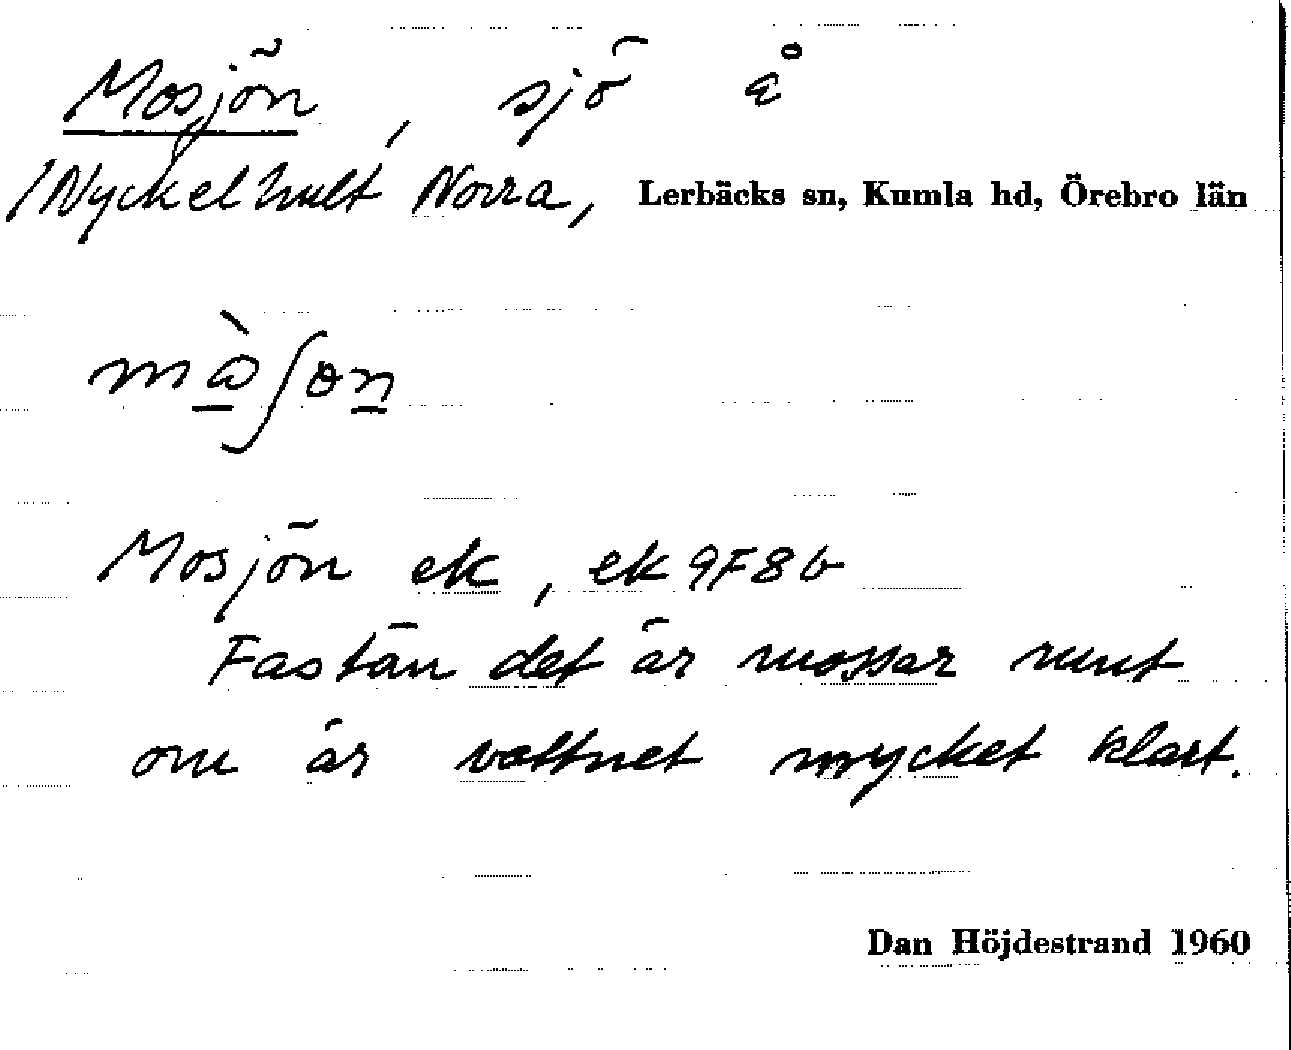 Mosjön, sjö å
/Nyckelhult Norra, Lerbäcks sn, Kumla hd, Örebro län
Mosjön ek, ek 9F8b
Fastän det är mossar runt
om är vattnet mycket klart.
Dan Höjdestrand 1960